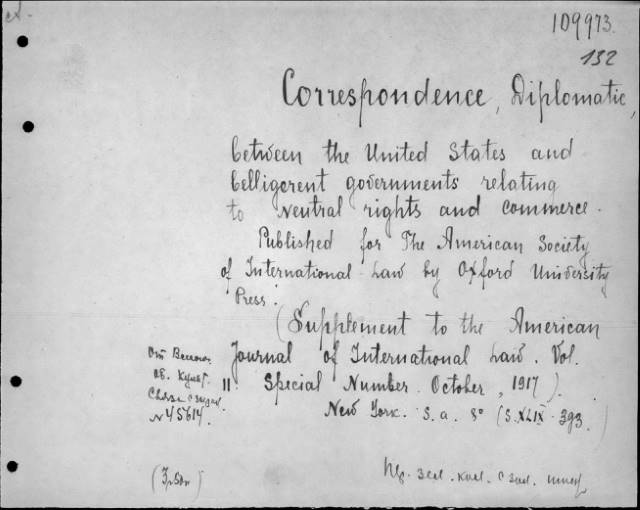 109973.
132
Correspondence, Diplomatic,
between the United States and
belligerent governments relating
to neutral rights and commerce.
Published for The American Society
of International Law by Oxford University
Press.
(Supplement to the American
Journal of International Law. Vol.
11 Special Number. October, 1917).
New York. S. a. 8° (S. XLIX. 393.)
N 45614.